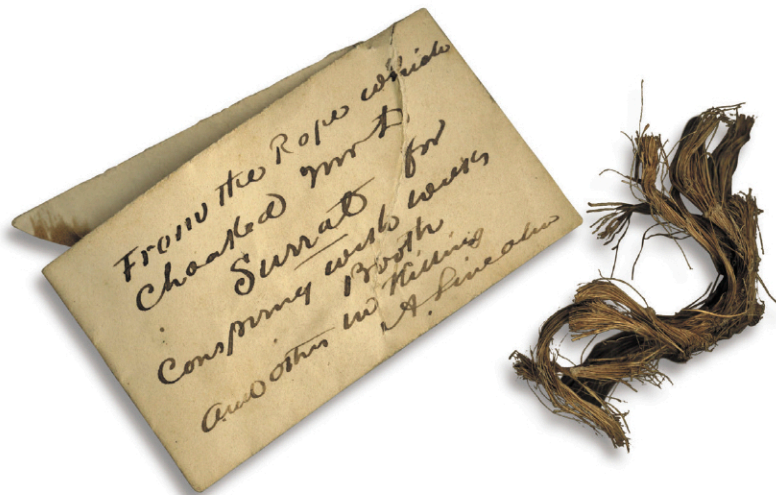 From the Rope which
Choaked Mrs
Surrat for
Conspiring with
Booth
and others in Killing
A. Lincoln